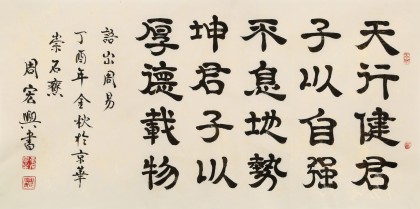 天行健君
子以自强
不息地勢
坤君子以
厚德載物
語出周易
丁酉年金秋於京華
崇石齋
周宏興書